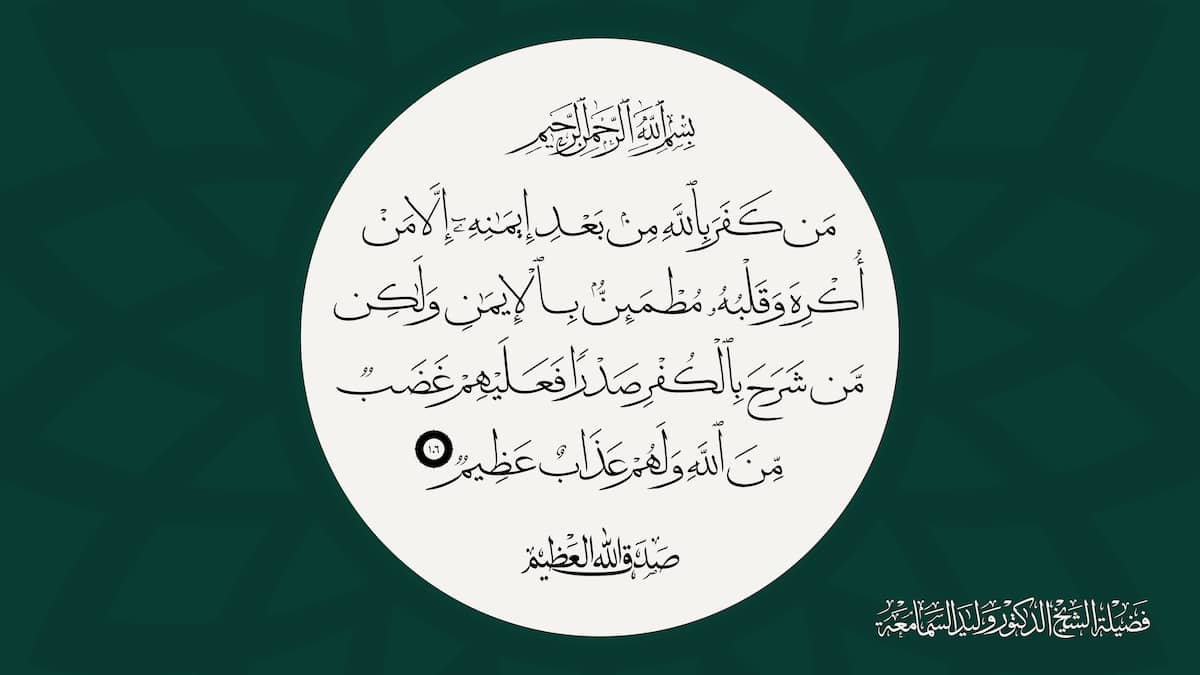 بِسْمِ ٱللَّهِ ٱلرَّحْمَٰنِ ٱلرَّحِيمِ
مَن كَفَرَ بِٱللَّهِ مِنۢ بَعْدِ إِيمَٰنِهِۦٓ إِلَّا مَنْ
أُكْرِهَ وَقَلْبُهُۥ مُطْمَئِنٌّۢ بِٱلْإِيمَٰنِ وَلَٰكِن
مَّن شَرَحَ بِٱلْكُفْرِ صَدْرًا فَعَلَيْهِمْ غَضَبٌ
مِّنَ ٱللَّهِ وَلَهُمْ عَذَابٌ عَظِيمٌ ١٠٦
صَدَقَ اللهُ العَظِيم
فَضِيلَة الشَّيْخ الدكتور وليد السَّمَامعَة